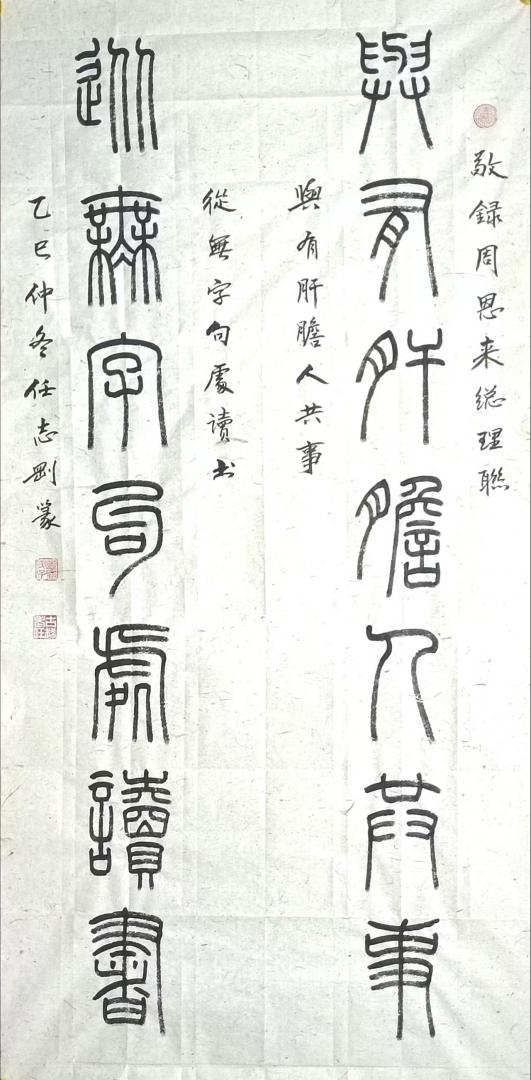 敬録周恩来総理聯
與有肝膽人共事
與有肝膽人共事
從無字句處讀书
從無字句處讀書
乙巳仲冬任志剛篆